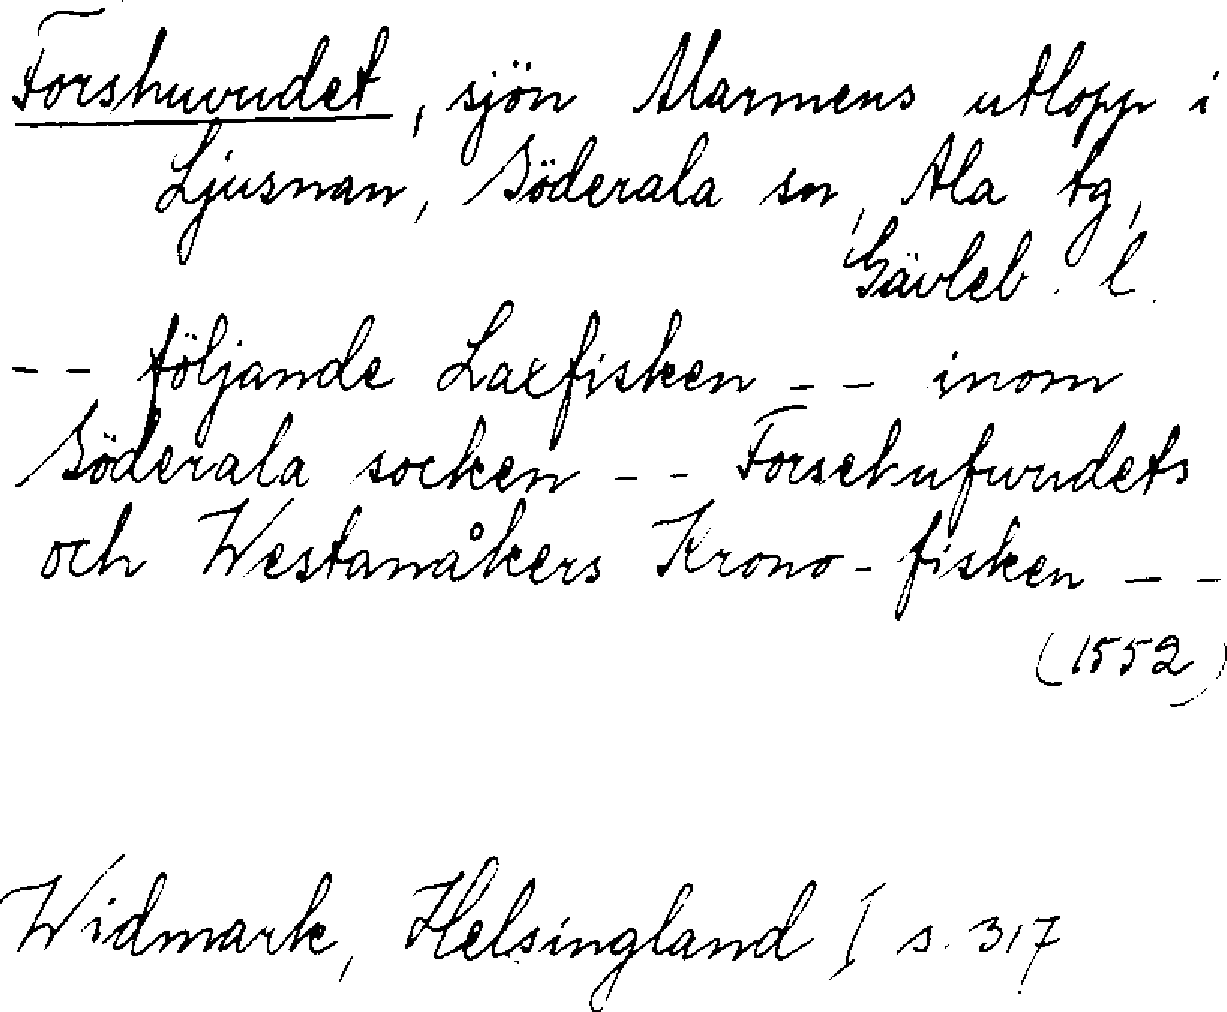 Forshuvudet, sjön Marmens utlopp i
Ljusnan, Söderala sn, Ala tg,
Gävleb. l.
-- följande Laxfisken -- inom
Söderala socken -- Forsehufvudets
och Westanåkers Krono-fisken --
(1552)
Widmark, Helsingland I s. 317